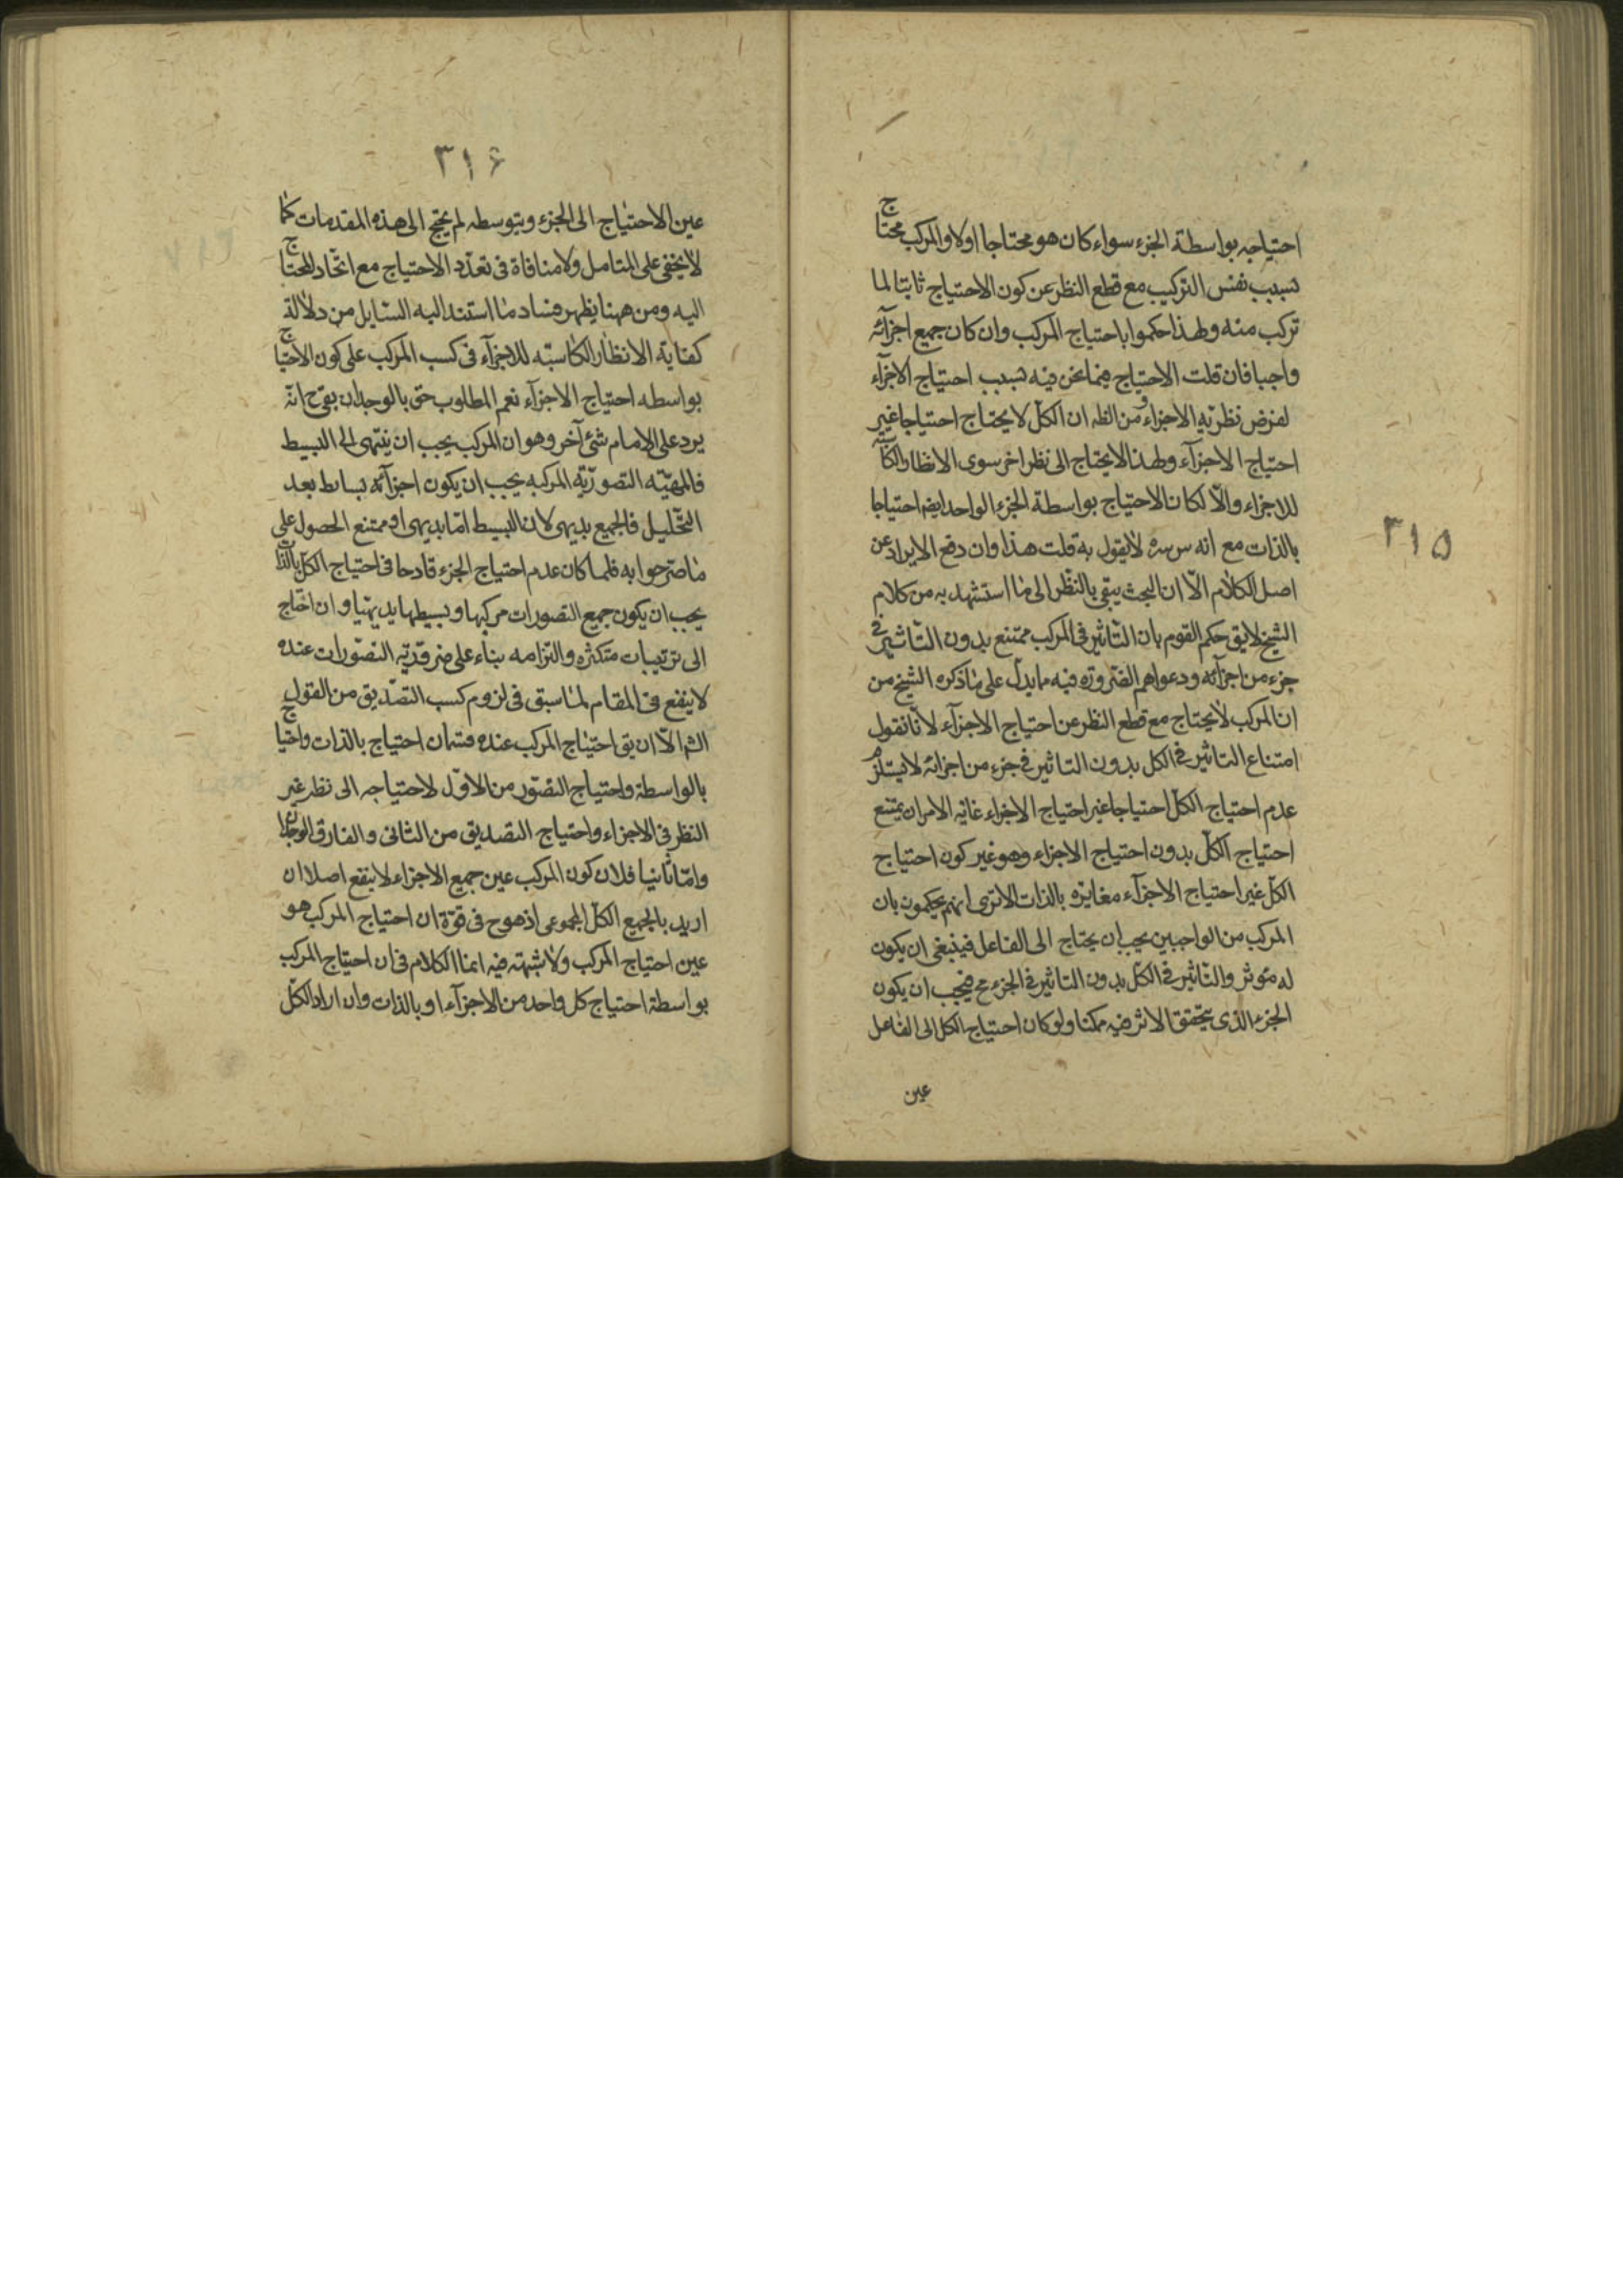 احتياجه بواسطة الجزء سواء كان هو محتاجا اولا والمركب محتاج
بسبب نفس التركيب مع قطع النظر عن كون الاحتياج ثابتا لما
تركب منه ولهذا حكموا باحتياج المركب وان كان جميع اجزآئه
واجبا فان قلت الاحتياج فيما نحن فيه بسبب احتياج الاجزآء
لفرض نظريّة الاجزاء ومن الظه ان الكلّ لا يحتاج احتياجا غير
احتياج الاجزآء ولهذا لا يحتاج الى نظر اخر سوى الانظار الكاسبة
للاجزاء والّا لكان الاحتياج بواسطة الجزء الواحد ايضه احتياجا
بالذات مع انه س سره لا يقول به قلت هذا وان دفع الايراد عن
اصل الكلام الّا ان البحث يبقى بالنّظر الى ما استشهد به من كلام
الشيخ لا يق حكم القوم بان التّاثير فى المركب ممتنع بدون التّاثير فى
جزء من اجزآئه ودعواهم الضّرورة فيه ما يدلّ على ما ذكره الشيخ من
ان المركب لا يحتاج مع قطع النظر عن احتياج الاجزآء لانّا نقول
امتناع التاثير فى الكل بدون التاثير فى جزء من اجزائه لا يستلزم
عدم احتياج الكلّ احتياجا غير احتياج الاجزاء غايه الامر ان يمتنع
احتياج الكلّ بدون احتياج الاجزاء وهو غير كون احتياج
الكلّ غير احتياج الاجزآء مغايره بالذات الا ترى انهم يحكمون بان
المركب من الواجبين يجب ان يحتاج الى الفاعل فينبغى ان يكون
له مؤثر والتّاثير فى الكلّ بدون التاثير فى الجزء مح فيجب ان يكون
الجزء الذى يتحقق الاثر فيه ممكنا ولو كان احتياج الكل الى الفاعل
عين
٣١۵
٣١۶
عين الاحتياج الى الجزء وبتوسطه لم يحتج الى هذه المقدمات كما
لا يخفى على المتامل ولا منافاة فى تعدّد الاحتياج مع اتّحاد المحتاج
اليه ومن ههنا يظهر فساد ما استند اليه السّايل من دلالة
كفاية الانظار الكاسبّه للاجزآء فى كسب المركب على كون الاحتياج
بواسطه احتياج الاجزآء نعم المطلوب حق بالوجدان بقى ح انّه
يرد على الامام شئ آخر وهو ان المركب يجب ان ينتهى الى البسيط
فالمهيّه التصوريّه المركبه يجب ان يكون اجزآئه بسايط بعد
التحّليل فالجميع بديهى لان البسيط امّا بديهى او ممتنع الحصول على
ما صرحوا به فلما كان عدم احتياج الجزء قادحا فى احتياج الكلّ بالذات
يجب ان يكون جميع التصورات مركبها وبسيطها بديهيّا وان احتاج
الى ترتيبات متكثره والتزامه بناء على ضروريّة التصّورات عنده
لا ينفع فى المقام لما سبق فى لزوم كسب التصّديق من القول
الش الّا ان يق احتياج المركب عنده قسمان احتياج بالذات واحتياج
بالواسطة واحتياج التصّور من الاوّل لاحتياجه الى نظر غير
النظر فى الاجزاء واحتياج التصديق من الثانى والفارق الوجدان
وامّا ثانيا فلان كون المركب عين جميع الاجزاء لا ينفع اصلا ان
اريد بالجميع الكلّ المجموعى اذ هو ح فى قوّة ان احتياج المركب هو
عين احتياج المركب ولا شبهته فيه انما الكلام فى ان احتياج المركب
بواسطة احتياج كل واحد من الاجزآء او بالذات وان اراد الكلّ